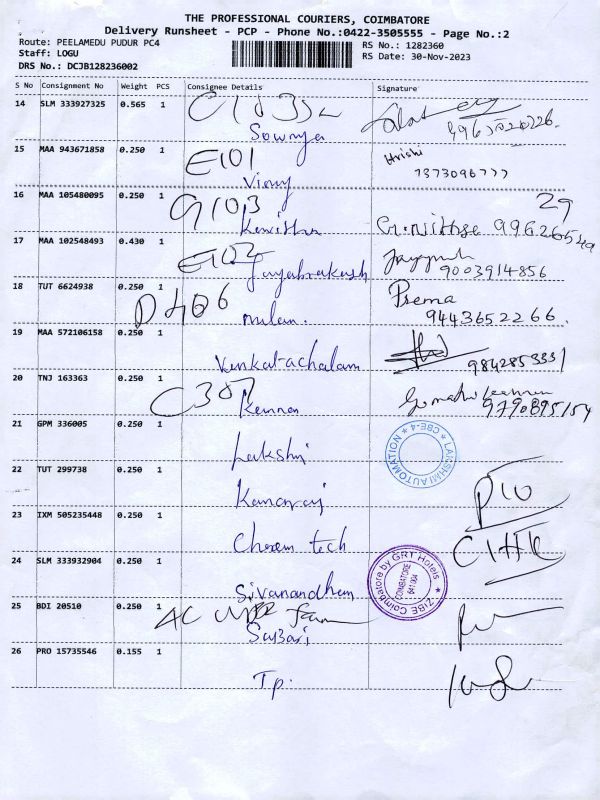 THE PROFESSIONAL COURIERS, COIMBATORE
Delivery Runsheet - PCP - Phone No.:0422-3505555 - Page No.:2
Route: PEELAMEDU PUDUR PC4
Staff: LOGU
DRS No.: DCJB128236002
RS No.: 1282360
RS Date: 30-Nov-2023
S No Consignment No Weight PCS Consignee Details Signature
14 SLM 333927325 0.565 1 Sowmya
15 MAA 943671858 0.250 1 E101 Vinay Hrishi 7373096777
16 MAA 105480095 0.250 1 G103 Kavitha 29
17 MAA 102548493 0.430 1 E102 Jayabrakash 9003914856
18 TUT 6624938 0.250 1 D406 Prema 9443652266.
19 MAA 572106158 0.250 1 Venkat-achalam 9842853331
20 TNJ 163363 0.250 1 C307 Kannan 9790895154
21 GPM 336005 0.250 1 Lakshmi LAKSHMI AUTOMATION ★ CBE-4 ★
22 TUT 299738 0.250 1 Kanaraj
23 IXM 505235448 0.250 1 tech
24 SLM 333932904 0.250 1 Sivanandhan ZIBE Coimbatore by GRT Hotels ★ COIMBATORE 641 004
25 BDI 20510 0.250 1 Sabari
26 PRO 15735546 0.155 1 T.p.